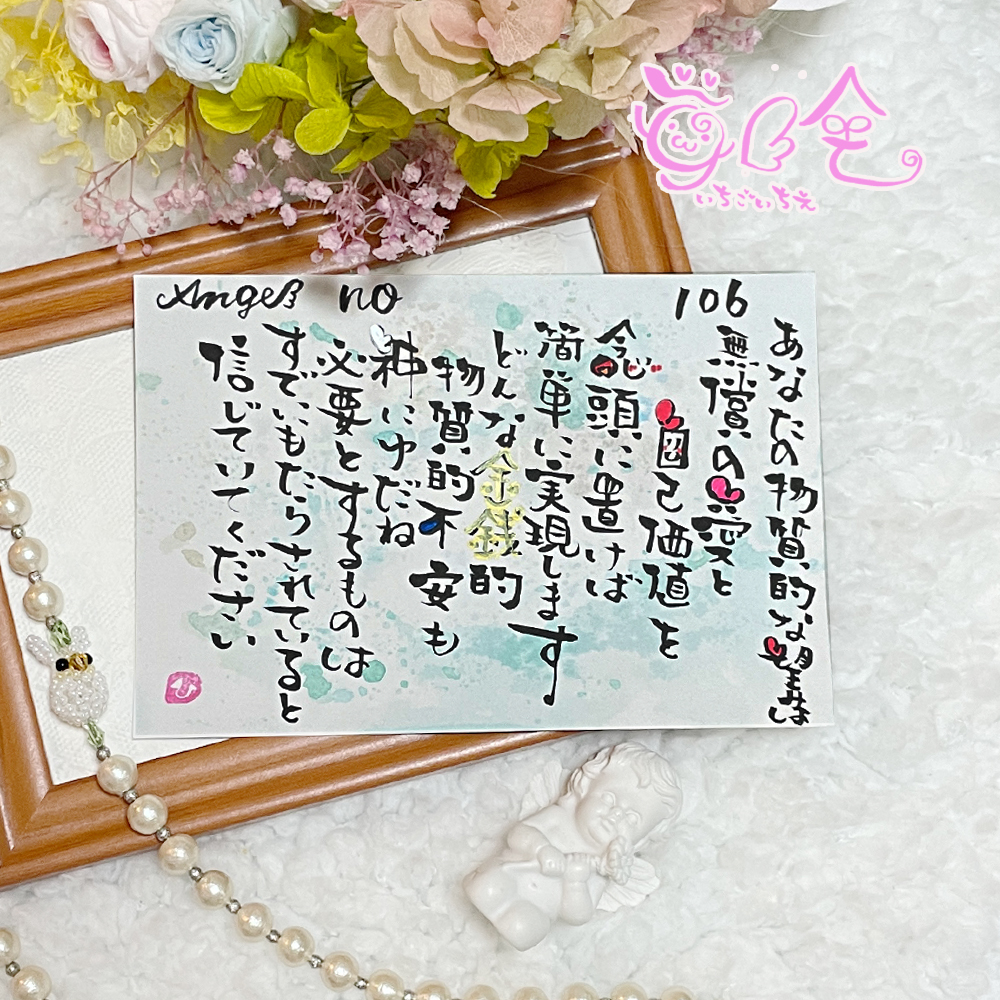 いちごいちえ
Angel no 106
あなたの物質的な望みは
無償の愛と
自己価値を
念頭に置けば
簡単に実現します
どんな金銭的
物質的不安も
神にゆだね
必要とするものは
すでにもたらされていると
信じていてください